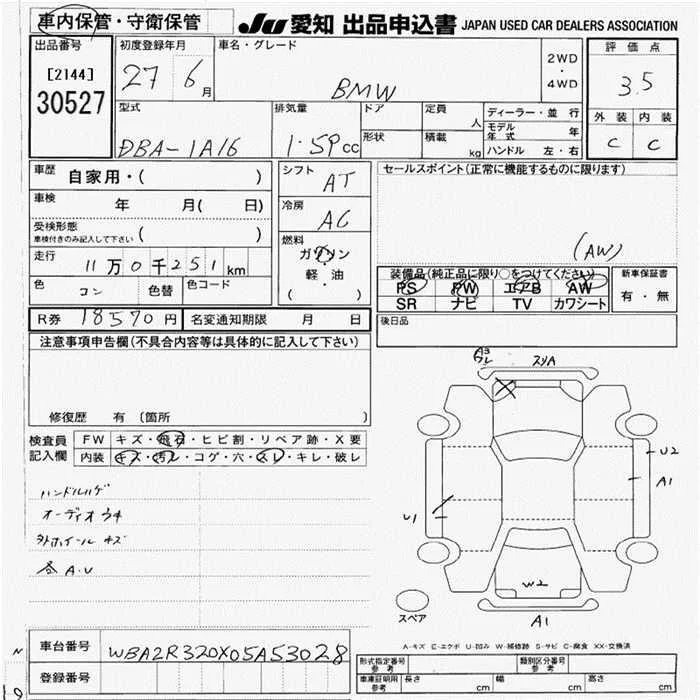 車内保管・守衛保管 JU 愛知 出品申込書 JAPAN USED CAR DEALERS ASSOCIATION
出品番号 [2144] 30527
初度登録年月 27 6月
車名・グレード BMW
2WD・4WD
評価点 3.5
外装 内装
C C
型式 DBA-1A16
排気量 1.59cc
ドア
形状
定員 人
積載 kg
ディーラー・並行
モデル年式 年
ハンドル 左・右
車歴 自家用・( )
車検 年 月( 日)
受検形態 ( )
車検付きのみ記入して下さい
走行 11万0千251km
色 コン 色替 色コード
シフト AT
冷房 AC
燃料 ガソリン・軽油
( )
セールスポイント(正常に機能するものに限ります)
(AW)
装備品(純正品に限り○をつけてください)
PS PW エアB AW
SR ナビ TV カワシート
新車保証書
有・無
R券 18570円 名変通知期限 月 日
後日品
注意事項申告欄(不具合内容等は具体的に記入して下さい)
修復歴 有 〔箇所 〕
検査員記入欄
FW キズ・飛石・ヒビ割・リペア跡・X要
内装 キズ・汚レ・コゲ・穴・スレ・キレ・破レ
ハンドルハゲ
オーディオ
外ホイールキズ
各A.U
A3
スリA
U2
A1
U1
W2
A1
スペア
A-キズ E-エクボ U-凹み W-補修跡 S-サビ C-腐食 XX-交換済
車台番号 WBA2R320X05A53028
登録番号
形式指定番号 参考
類別区分番号 参考
車庫証明用 参考 長さ cm 幅 cm 高さ cm